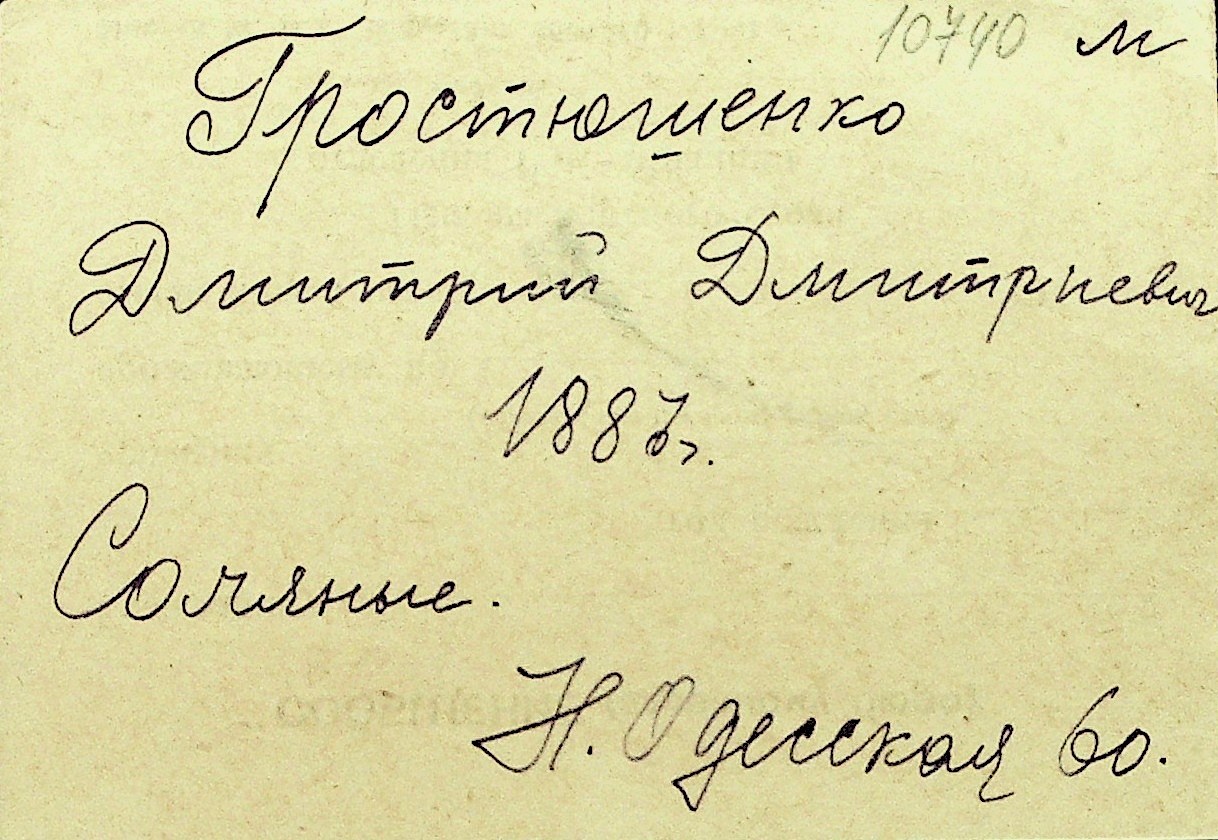 10740 м
Гростюшенко
Дмитрий Дмитриевич
1887г.
Соляные.
Н. Одесская 60.